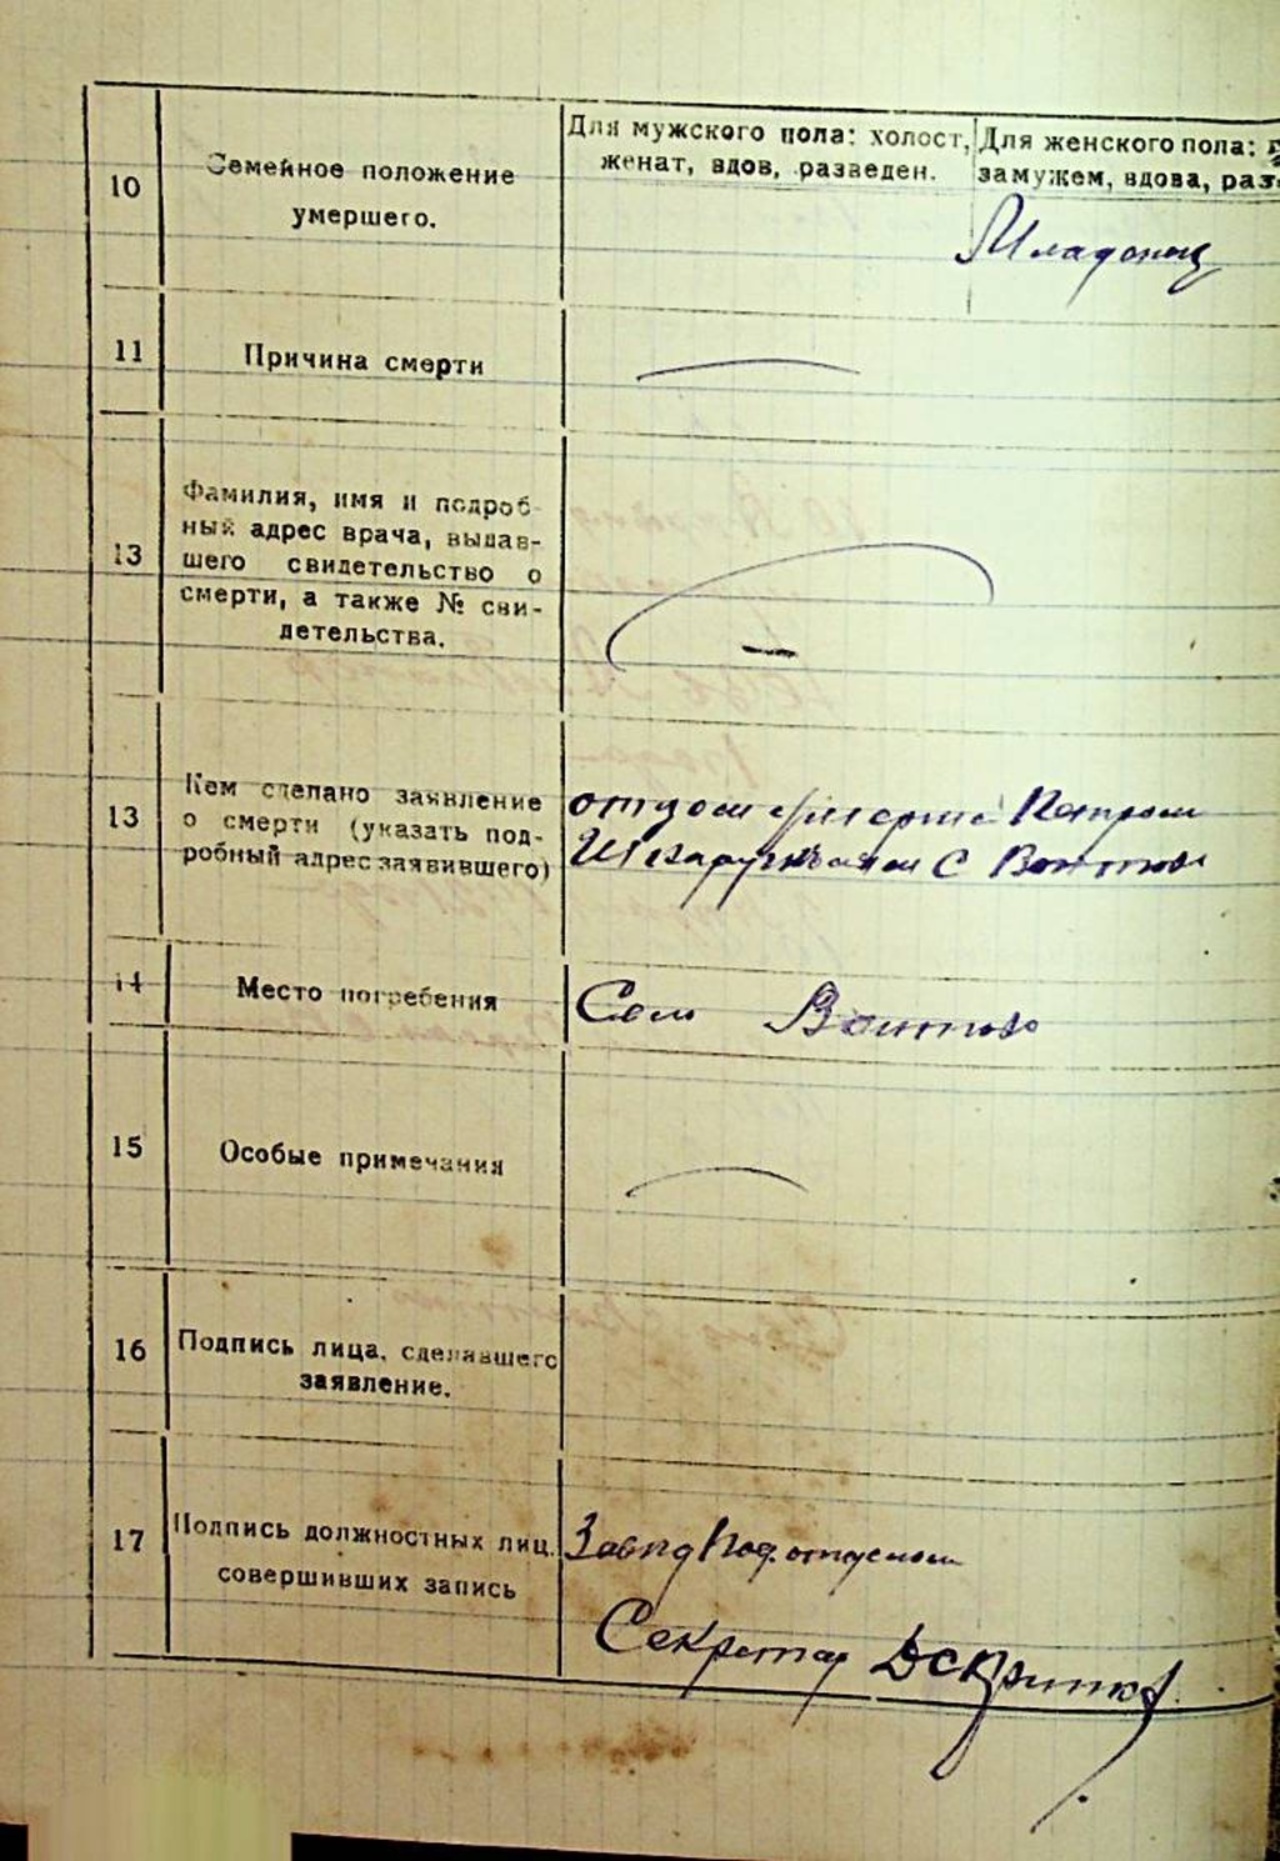 Для мужского пола: холост,
женат, вдов, разведен.
Для женского пола:
замужем, вдова, раз
10
Семейное положение
умершего.
Младонец
11
Причина смерти
13
Фамилия, имя и подроб-
ный адрес врача, выдав-
шего свидетельство о
смерти, а также № сви-
детельства.
13
Кем сделано заявление
о смерти (указать под-
робный адрес заявившего)
отцом Петром
С Воитово
14
Место погребения
Село Воитово
15
Особые примечания
16
Подпись лица, сделавшего
заявление.
17
Подпись должностных лиц,
совершивших запись
Секретар